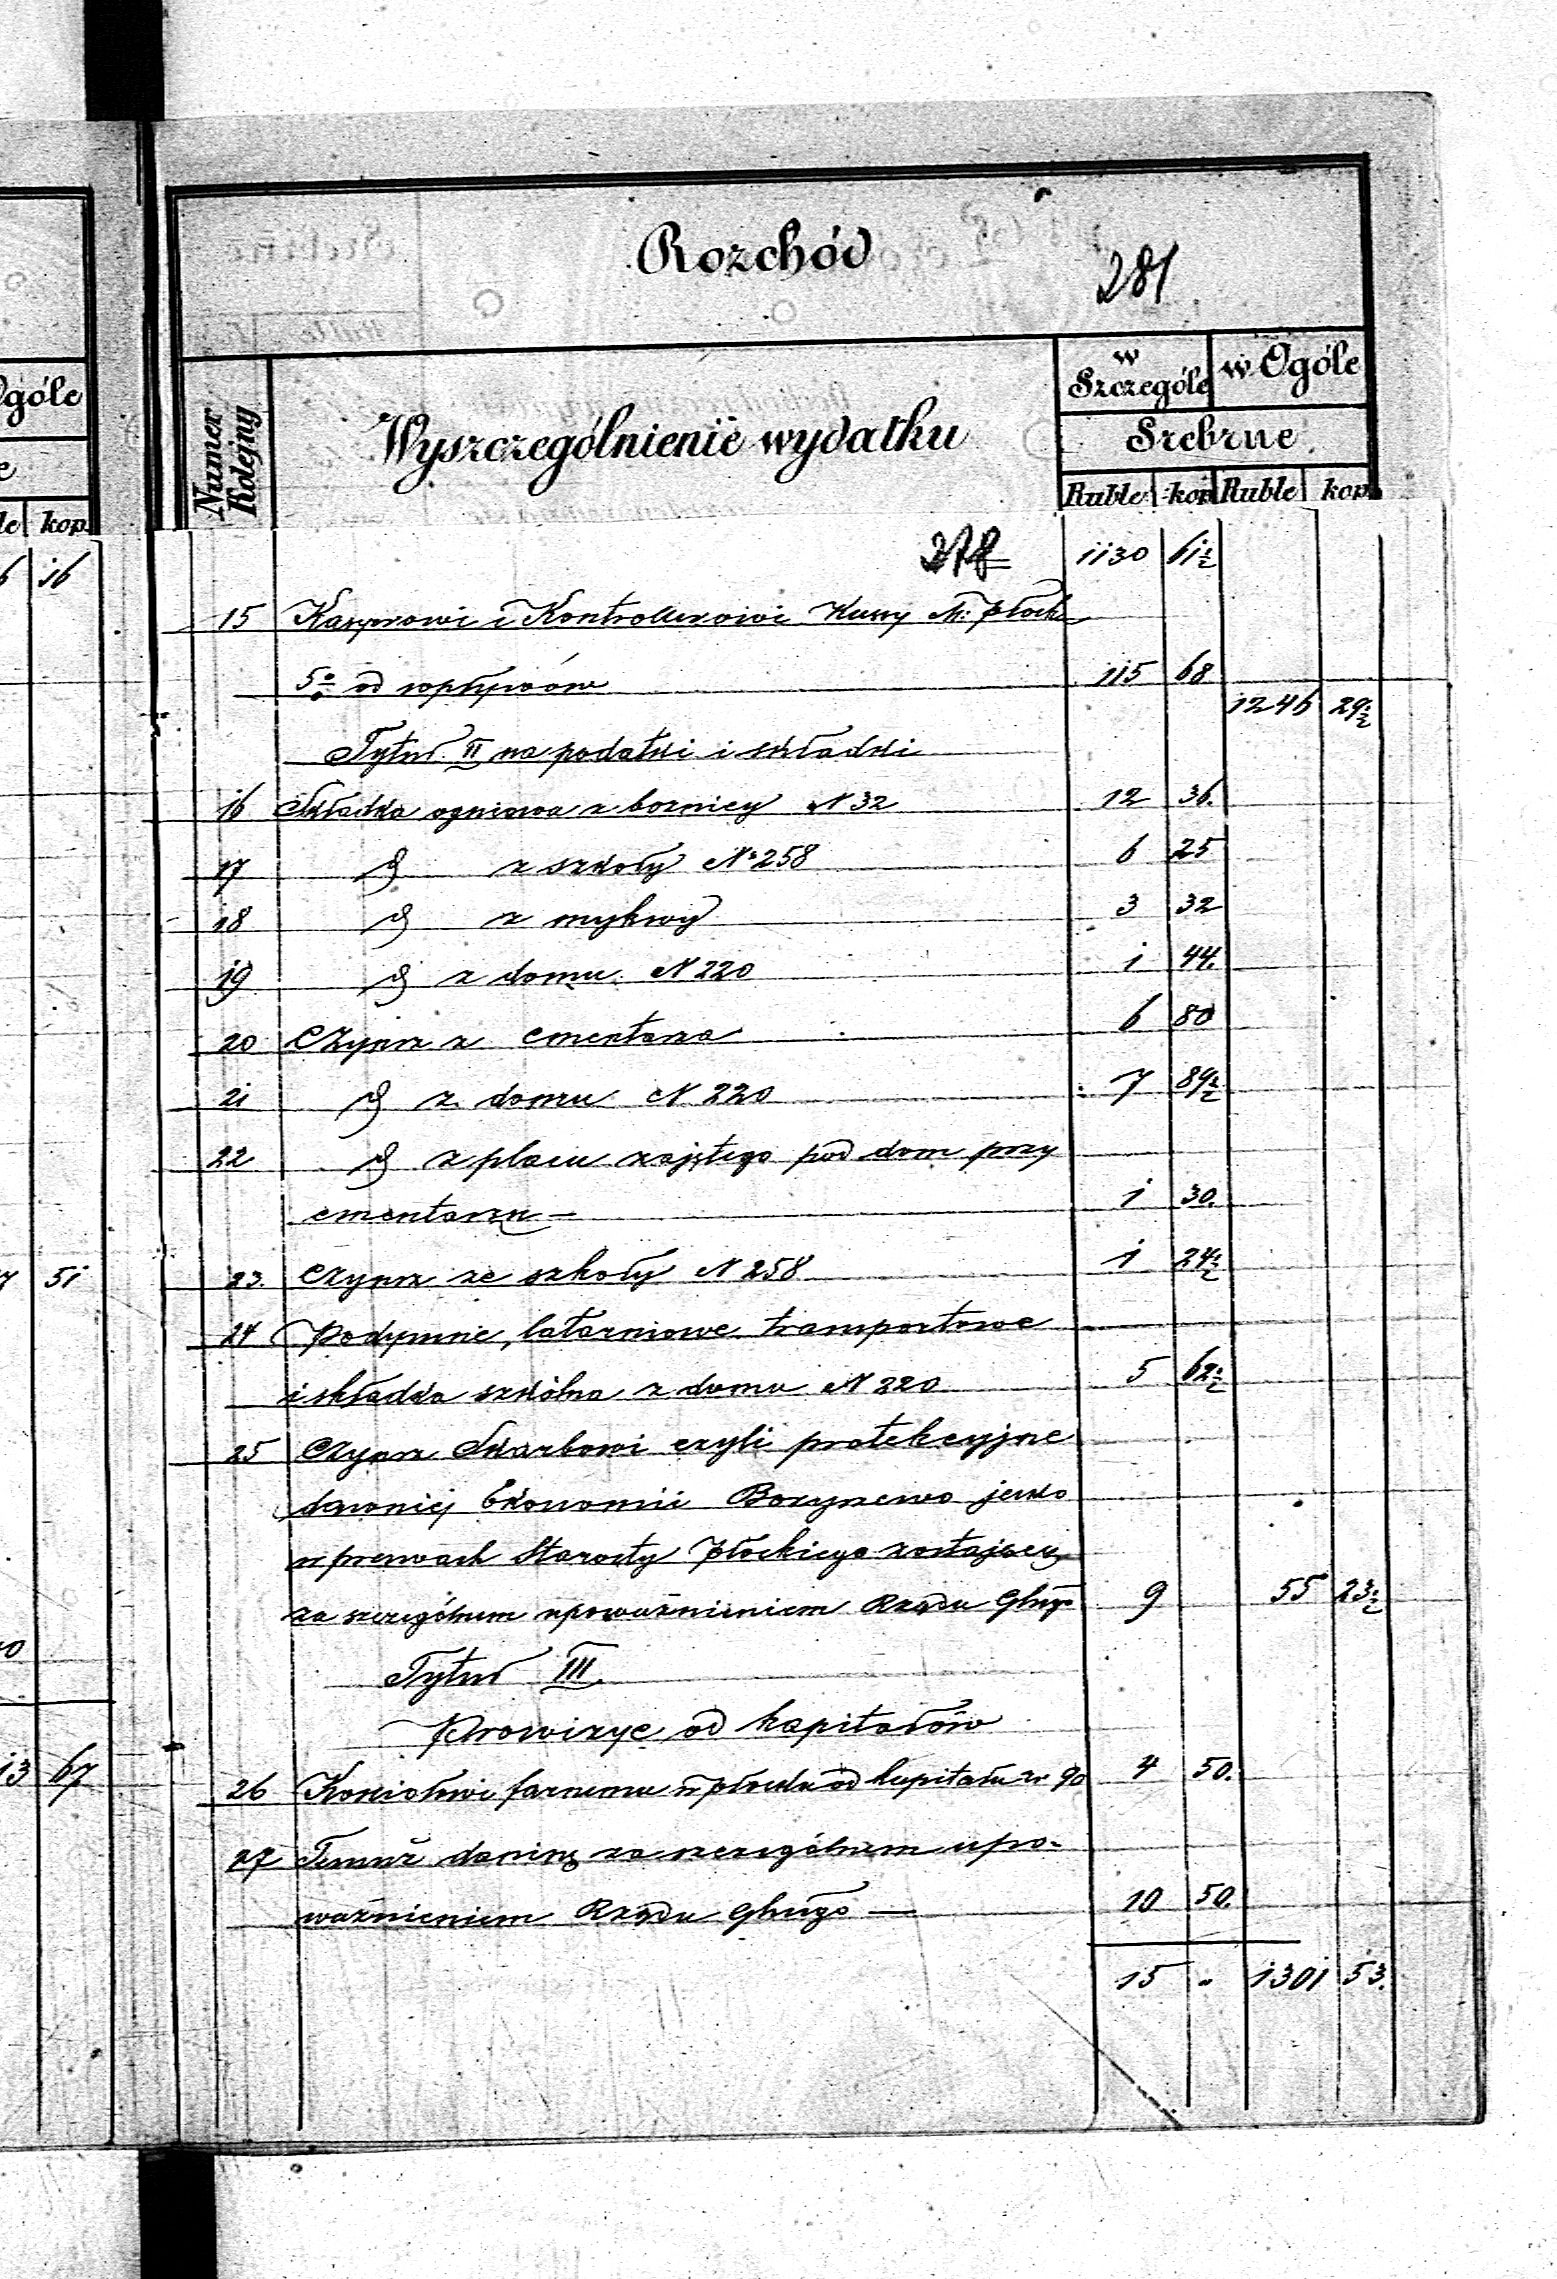 Rozchód
281
Numer Kolejny
Wyszczególnienie wydatku
w Szczególe
w Ogóle
Srebrne
Ruble kop. Ruble kop.
278 1130 61½
15 Kassyerowi i Kontrollerowi Kassy M. Płocka
5% od wpływów 115 68
1246 29½
Tytuł II na podatki i składki
16 Składka ogniowa z boznicy N 32 12 36.
17 d z szkoły No 258 6 25
18 d z mykwy 3 32
19 d z domu N 220 1 44.
20 Czynsz z cmentarza 6 80
21 d z domu N 220 7 89½
22 d z placu zajętego pod dom przy
cmentarzu — 1 30.
23. Czynsz ze szkoły N 258 1 24½
24 Podymne, latarniowe transportowe
i składka szkólna z domu N 220 5 62½
25 Czynsz Skarbowi czyli protekcyjne
dawniej Ekonomii Boryszewo jako
w prawach Starosty Płockiego zostającej
za szczególnem upoważnieniem Rządu Głngo 9 55 23½
Tytuł III.
Prowizye od kapitałów
26 Kościołowi farnemu w Płocku od kapitału rs 90 4 50.
27 Temuż daninę za szczególnem upo-
ważnieniem Rządu Głngo — 10 50.
15 " 1301 53.
Ogóle
kop.
16
51
13 67